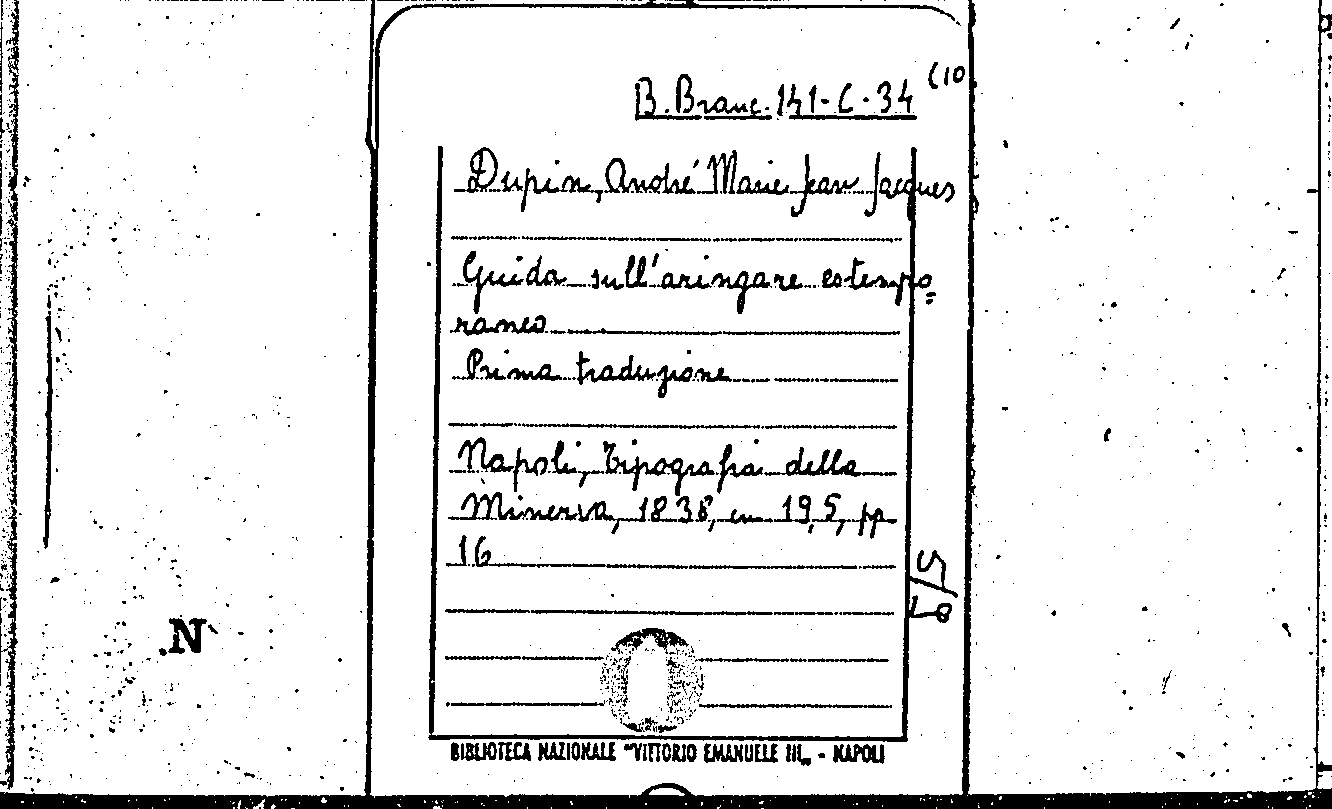 B. Branc. 141-C-34 (10
Dupin, André Marie Jean Jacques
Guida sull'aringare estempo=
raneo
Prima traduzione
Napoli, Tipografia della
Minerva, 1838, in 19,5, pp.
16
N
BIBLIOTECA NAZIONALE "VITTORIO EMANUELE III„ - NAPOLI